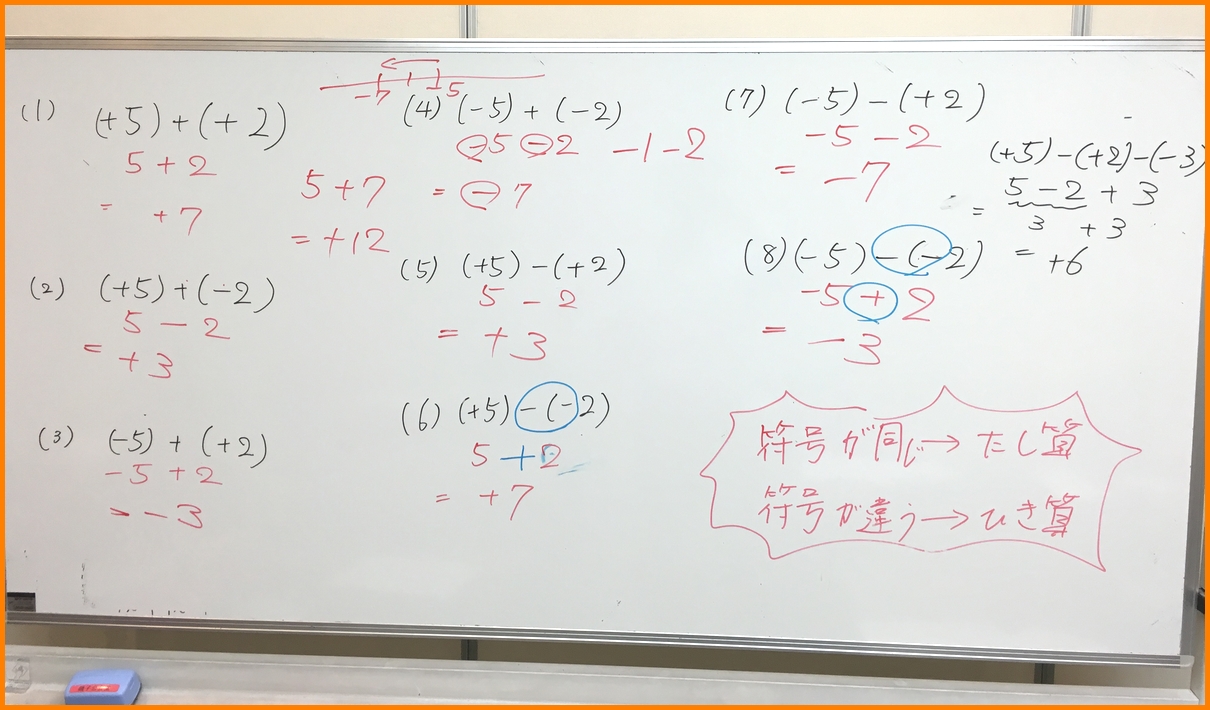 (1) (+5)+(+2)
5+2
= +7
(2) (+5)+(-2)
5-2
= +3
(3) (-5)+(+2)
-5+2
= -3
5+7
= +12
-7 -5
(4) (-5)+(-2)
-5-2 -1-2
= -7
(5) (+5)-(+2)
5-2
= +3
(6) (+5)-(-2)
5+2
= +7
(7) (-5)-(+2)
-5-2
= -7
(8) (-5)-(-2)
-5+2
= -3
(+5)-(+2)-(-3)
= 5-2+3
3 +3
= +6
符号が同じ→たし算
符号が違う→ひき算